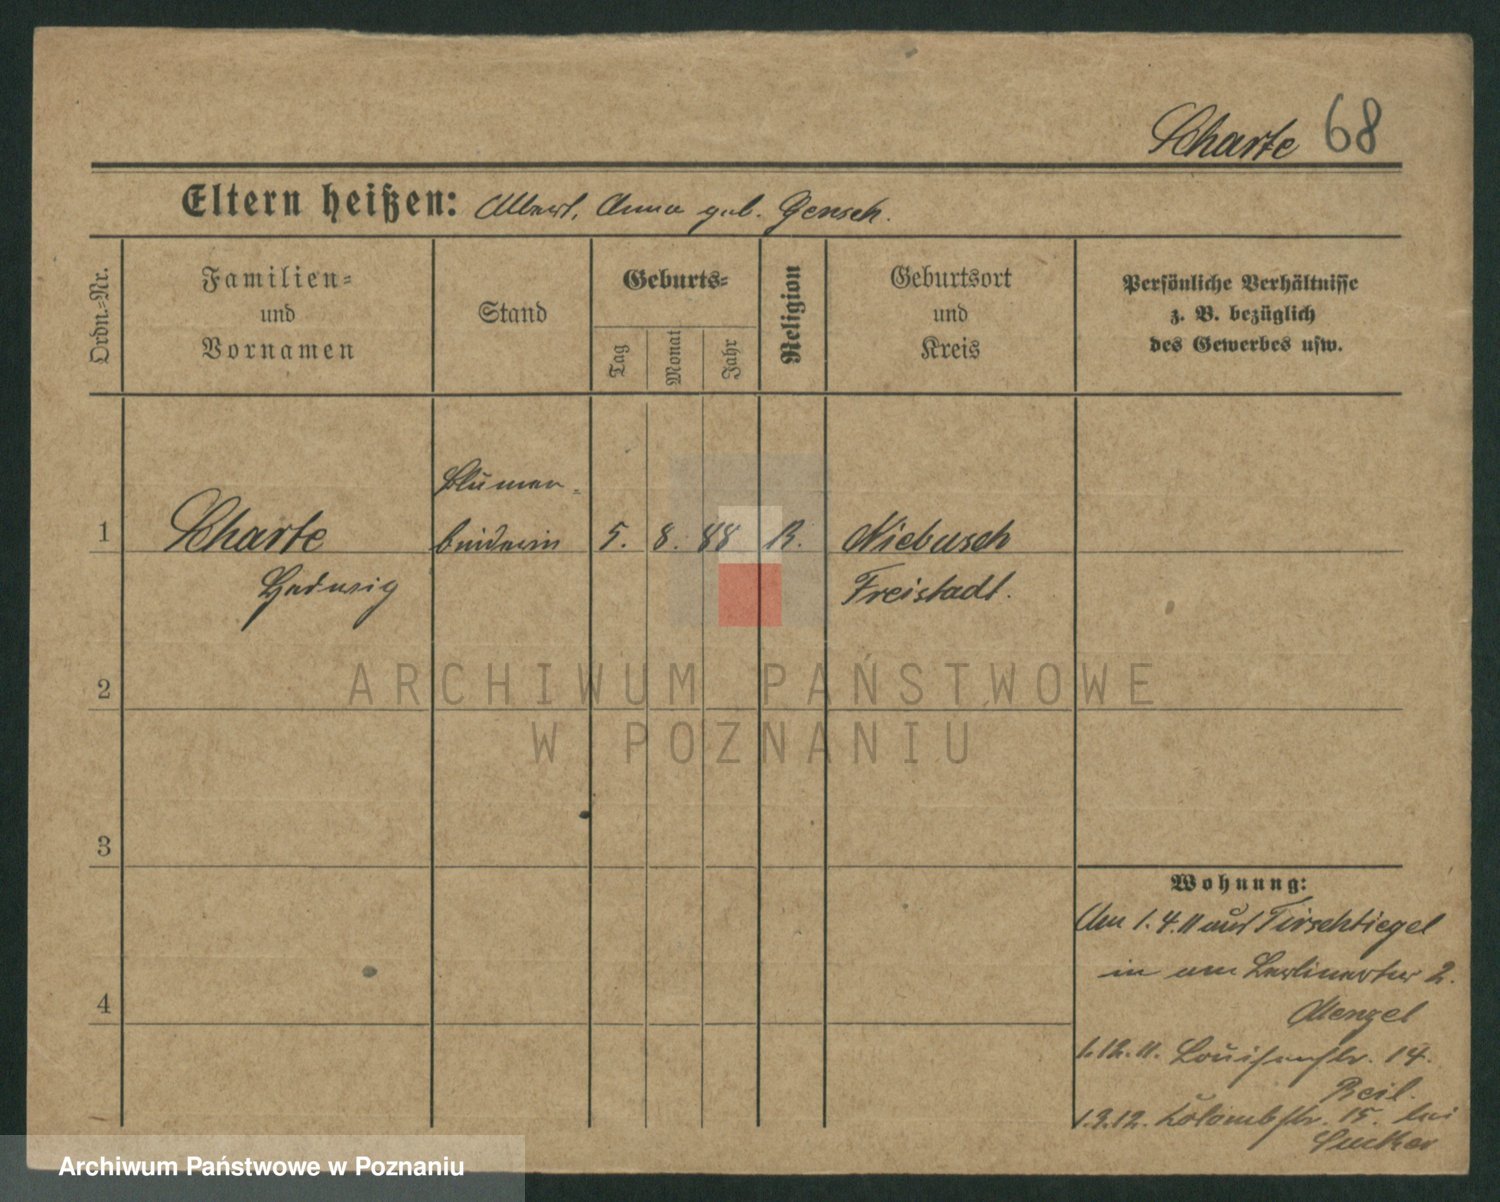 Scharte 68
Eltern heißen: Albert, Anna geb. Gensch.
Ordn.-Nr.
Familien-
und
Vornamen
Stand
Geburts-
Tag
Monat
Jahr
Religion
Geburtsort
und
Kreis
Persönliche Verhältnisse
z. B. bezüglich
des Gewerbes usw.
Blumen-
1 Scharte binderin 5. 8. 88 R. Niebusch
Hedwig Freistadt.
2
3
4
Wohnung:
Am 1.4.11 aus Tirschtiegel
in am Berlinertor 2.
Menzel
1.12.11. Louisenstr. 14.
Reil.
1.3.12. Kolombstr. 15. bei
ARCHIWUM PAŃSTWOWE
W POZNANIU
Archiwum Państwowe w Poznaniu